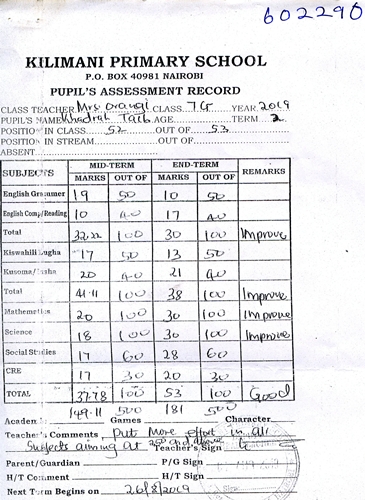 602290
KILIMANI PRIMARY SCHOOL
P.O. BOX 40981 NAIROBI
PUPIL'S ASSESSMENT RECORD
CLASS TEACHER Mrs Orangi CLASS 7G YEAR 2019
PUPIL'S NAME Khadrah Taib AGE TERM 2
POSITION IN CLASS 52 OUT OF 53
POSITION IN STREAM OUT OF
ABSENT
SUBJECTS MID-TERM END-TERM REMARKS
MARKS OUT OF MARKS OUT OF
English Grammer 19 50 10 50
English Comp/Reading 10 40 17 40
Total 32.22 100 30 100 Improve
Kiswahili Lugha 17 50 13 50
Kusoma/Insha 20 40 21 40
Total 41.11 100 38 100 Improve
Mathematics 20 100 30 100 Improve
Science 18 100 30 100 Improve
Social Studies 17 60 28 60
CRE 17 30 20 30
TOTAL 37.78 100 53 100 Good
149.11 500 181 500
Academ Games Character
Teacher's Comments Put More effort in all
Subjects aiming at 250 and above Teacher's Sign
Parent/Guardian P/G Sign
H/T Comment H/T Sign
Next Term Begins on 26/8/2019